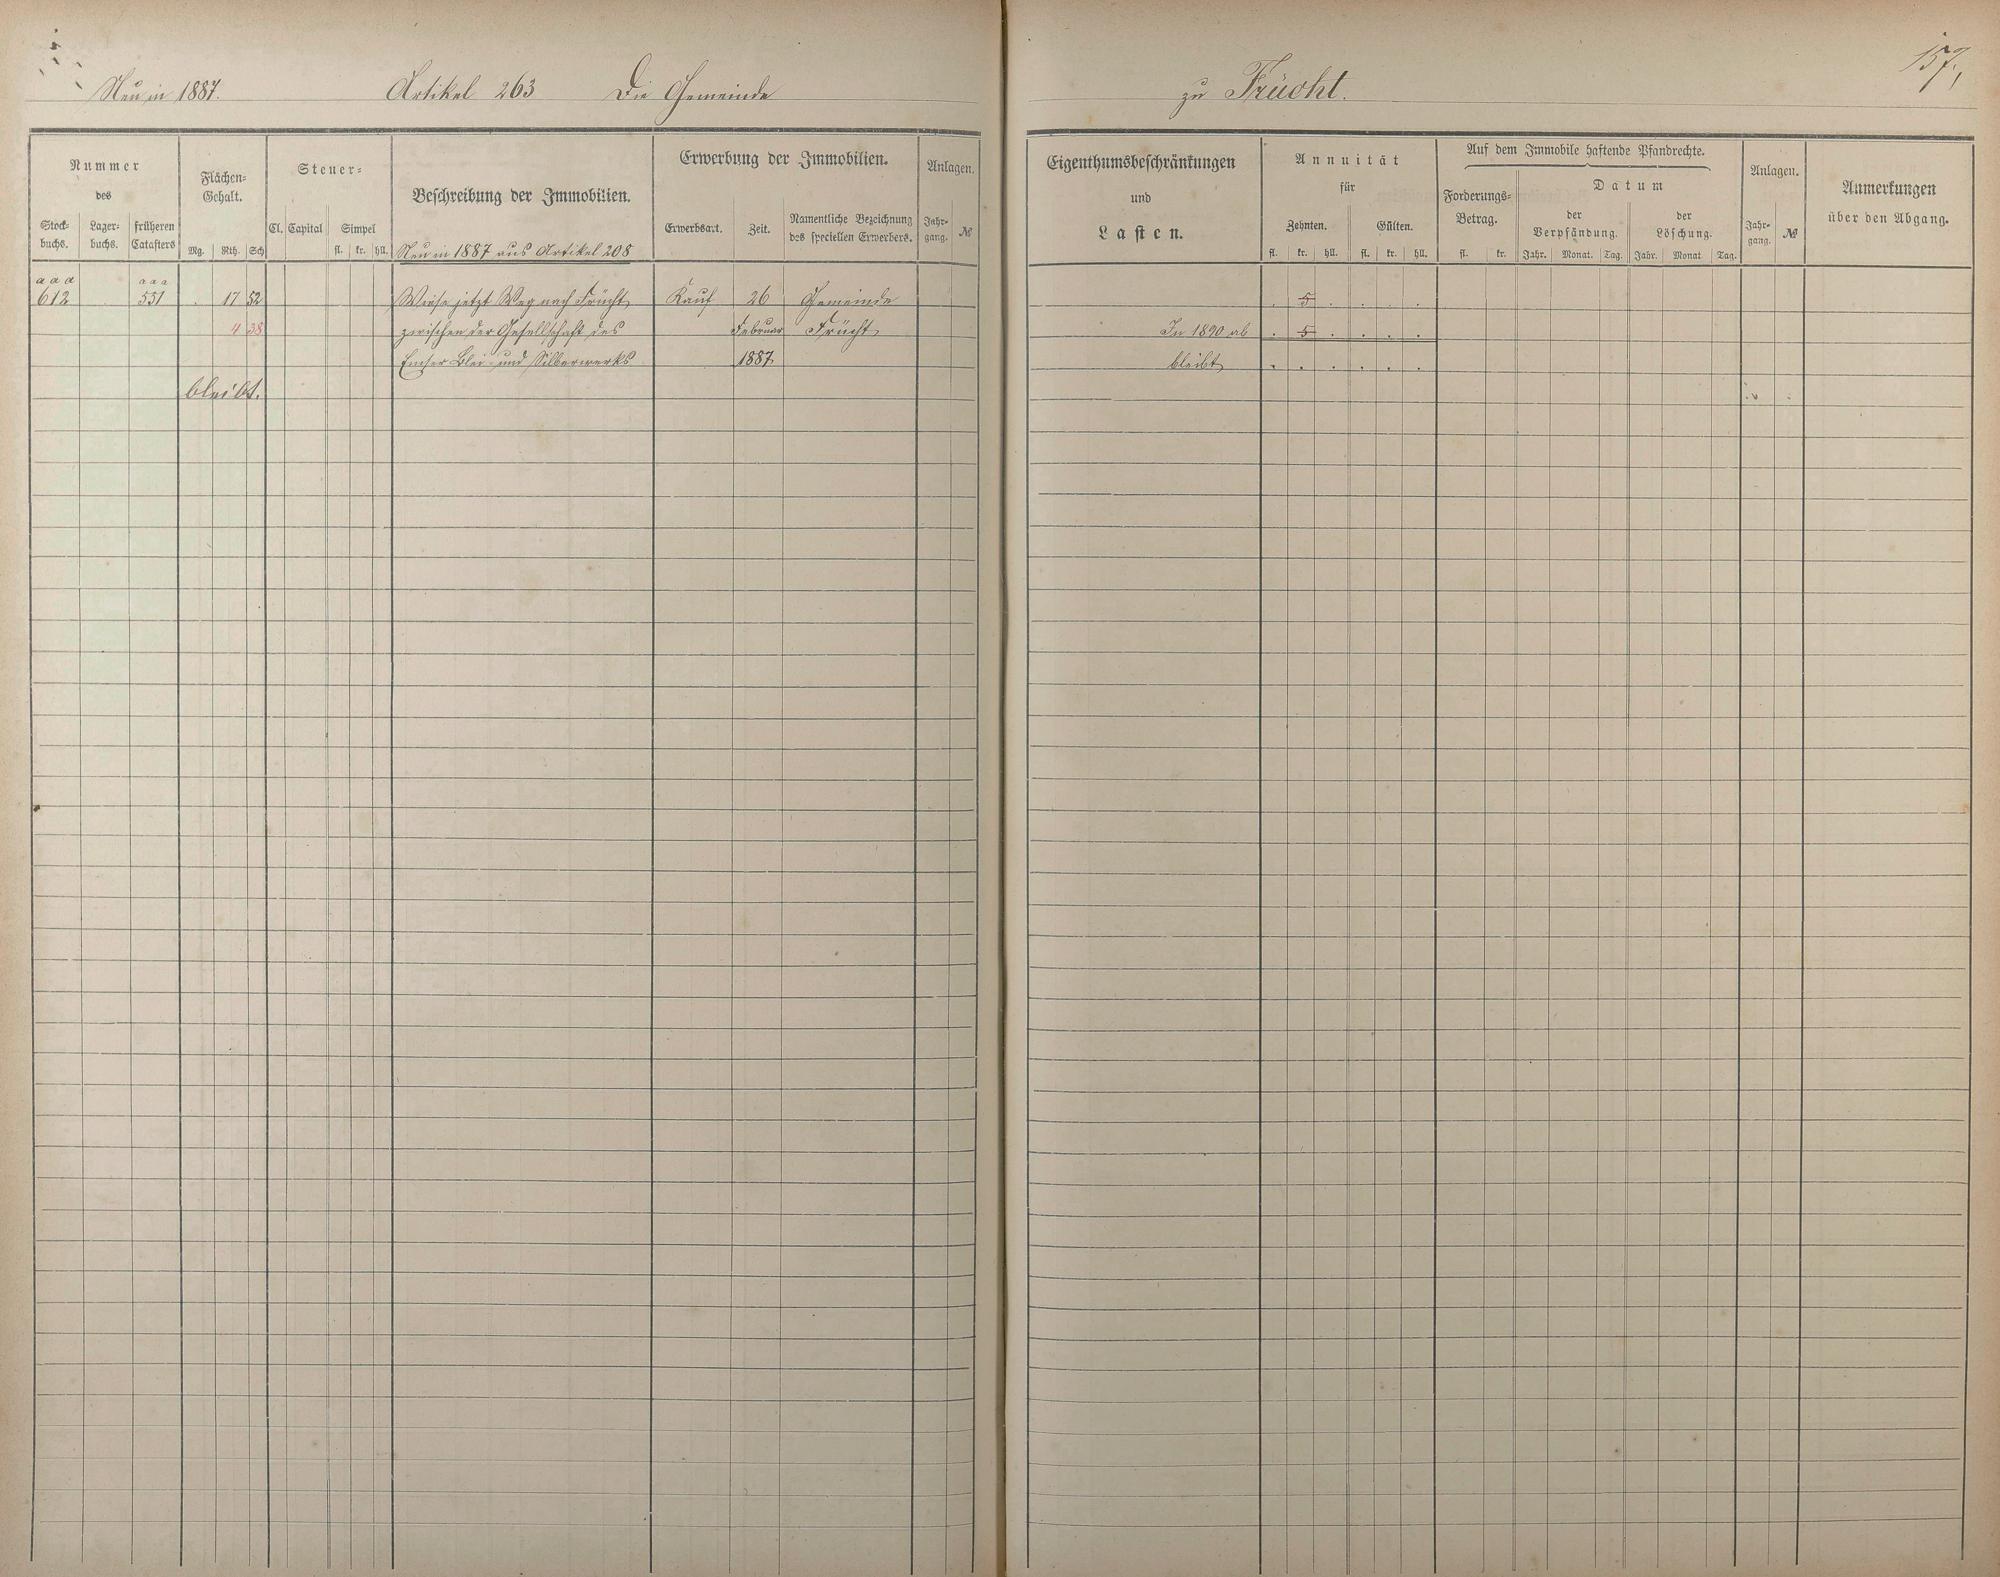 Neu in 1887. Artikel 263 Die Gemeinde zu Frücht. 157.
Nummer
des
Stock-
buchs.
Lager-
buchs.
früheren
Catasters
Flächen-
Gehalt.
Mg. Rth. Sch
Steuer-
Cl. Capital Simpel
fl. kr. hll.
Beschreibung der Immobilien.
Neu in 1887 aus Artikel 208
Erwerbung der Immobilien.
Erwerbsart. Zeit.
Namentliche Bezeichnung
des speciellen Erwerbers.
Anlagen.
Jahr-
gang.
№
Eigenthumsbeschränkungen
und
Lasten.
Annuität
für
Zehnten. Gülten.
fl. kr. hll. fl. kr. hll.
Auf dem Immobile haftende Pfandrechte.
Forderungs-
Betrag.
fl. kr.
Datum
der
Verpfändung.
Jahr. Monat. Tag.
der
Löschung.
Jahr. Monat Tag.
Anlagen.
Jahr-
gang.
№
Anmerkungen
über den Abgang.
a a a a a a
612 551 . 17 52 Wiese jetzt Weg nach Frücht Kauf 26 Gemeinde . 5 . . . .
4 38 zwischen der Gesellschaft des Februar Frücht In 1890 ab . 5 . . . .
Emser Blei- und Silberwerks 1887 bleibt . . . . . .
bleibt.